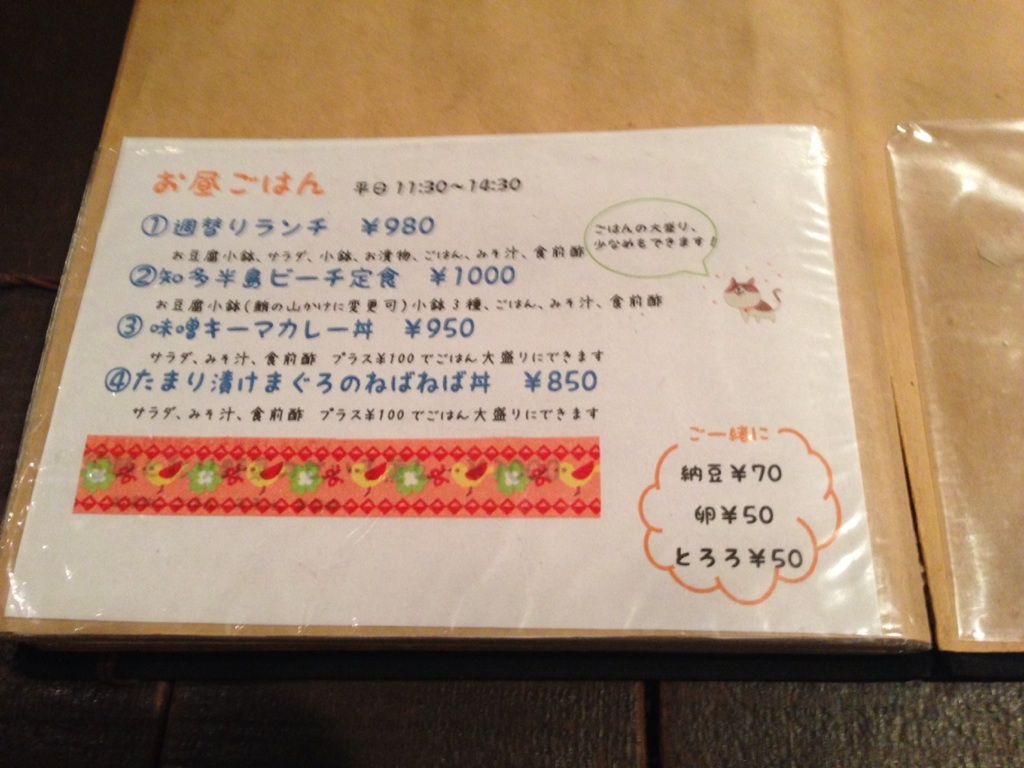 お昼ごはん 平日 11:30～14:30
①週替りランチ ¥980
お豆腐小鉢、サラダ、小鉢、お漬物、ごはん、みそ汁、食前酢
②知多半島ビーチ定食 ¥1000
お豆腐小鉢(鮪の山かけに変更可)小鉢3種、ごはん、みそ汁、食前酢
③味噌キーマカレー丼 ¥950
サラダ、みそ汁、食前酢 プラス¥100でごはん大盛りにできます
④たまり漬けまぐろのねばねば丼 ¥850
サラダ、みそ汁、食前酢 プラス¥100でごはん大盛りにできます
ごはんの大盛り、
少なめもできます!
ご一緒に
納豆¥70
卵¥50
とろろ¥50